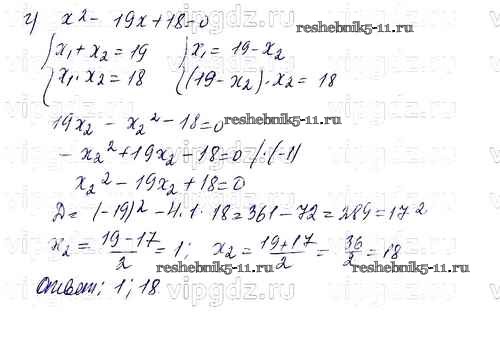 г) x² - 19x + 18 = 0
{ x₁ + x₂ = 19 { x₁ = 19 - x₂
{ x₁ · x₂ = 18 { (19 - x₂) · x₂ = 18
19x₂ - x₂² - 18 = 0
- x₂² + 19x₂ - 18 = 0 / · (-1)
x₂² - 19x₂ + 18 = 0
D = (-19)² - 4 · 1 · 18 = 361 - 72 = 289 = 17²
x₂ = (19 - 17)/2 = 1; x₂ = (19 + 17)/2 = 36/2 = 18
Ответ: 1; 18
reshebnik5-11.ru
reshebnik5-11.ru
reshebnik5-11.ru
reshebnik5-11.ru
reshebnik5-11.ru
reshebnik5-11.ru
vipgdz.ru